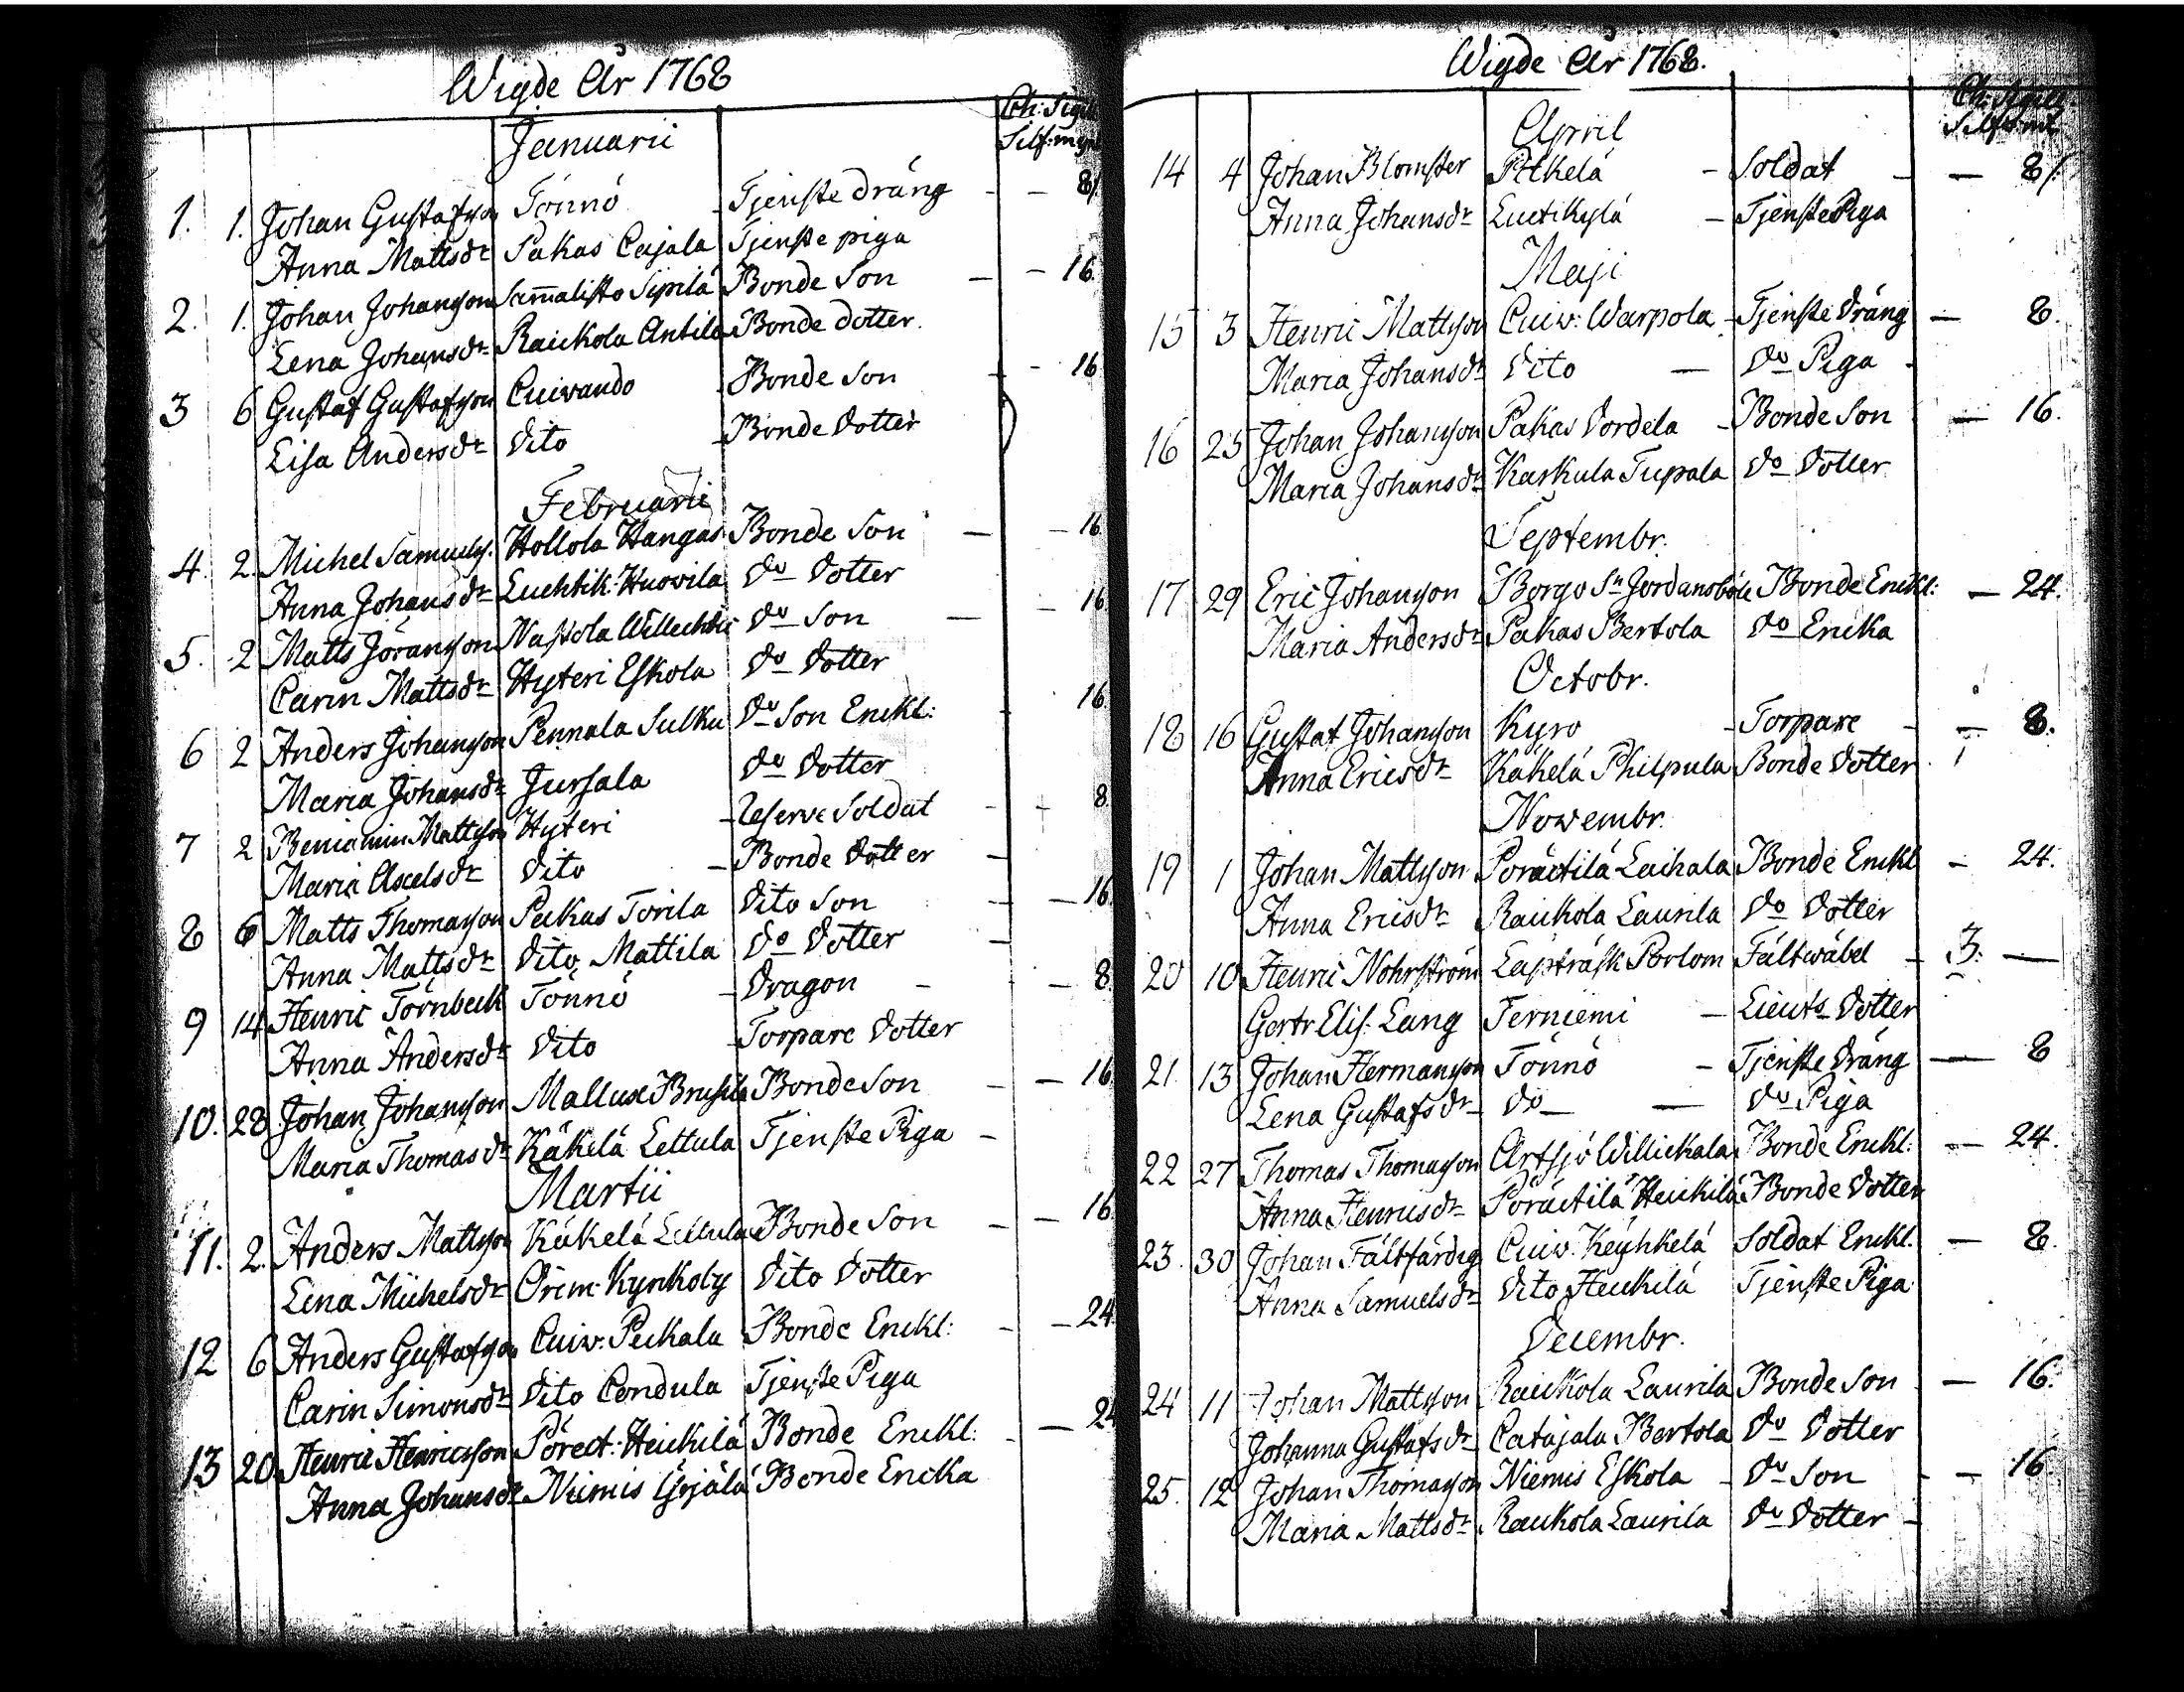 Wigde År 1768
Ch: Sigill
Silf:mynt
Januarii
1. 1. Johan Gustafson Tönnö - Tjenste dräng - - 8/.
Anna Mattsdr Pakas Cajala Tjenste piga
2. 1. Johan Johanson Sam̅alisto Sipilä Bonde Son - - 16.
Lena Johansdr Raickola Antila Bonde dotter.
3 6 Gustaf Gustafson Cuivando - Bonde Son - - 16
Lisa Andersdr Dito - Bonde Dotter
Februarii
4. 2. Michel Samuels. Hollola Hangas Bonde Son - - 16
Anna Johansdr Luchtik. Huovila Do Dotter
5. 2 Matts Göranson Nastola Do Son - - 16
Carin Mattsdr Hyteri Eskola Do Dotter
6 2 Anders Johanson Pennala Sulku Do Son Enckl: - 16
Maria Johansdr Jursala Do Dotter
7 2 Beniamin Mattson Hyteri - Reserve Soldat - - 8
Maria Axelsdr Dito - Bonde Dotter -
8 6 Matts Thomason Pakas Torila Dito Son - - 16
Anna Mattsdr Dito Mattila Do Dotter -
9 14 Henric Törnbeck Tönnö - Dragon - - 8
Anna Andersdr Dito - Torpare Dotter
10. 28 Johan Johanson Mallux Brusila Bonde Son - - 16
Maria Thomasdr Käkelä Lettula Tjenste Piga -
Martii
11. 2. Anders Mattson Käkelä Lettula Bonde Son - - 16
Lena Michelsdr Orim. Kynkoby Dito Dotter
12 6 Anders Gustafson Cuiv: Peckala Bonde Enckl: - - 24
Carin Simonsdr Dito Condula Tjenste Piga
13 20 Henric Henricsson Pörect: Heickilä Bonde Enckl: - - 24
Anna Johansdr Niemis Bonde Encka
Wigde År 1768.
Ch: Sigill
Silf:mt
April
14 4 Johan Blomster Pitkelä - Soldat - - 8/.
Anna Johansdr Luctikylä - Tjenste Piga
Maji
15 3 Henric Mattson Cuiv: Warpola - Tjenste Dräng - 8.
Maria Johansdr Dito - Do Piga -
16 25 Johan Johanson Pakas Dordela - Bonde Son - 16.
Maria Johansdr Karkula Tupala Do Dotter
Septembr.
17 29 Eric Johanson Borgo Sn Jordansböle Bonde Enckl: - 24.
Maria Andersdr Pakas Bertola Do Encka
Octobr.
18 16 Gustaf Johanson Kyro - Torpare - - 8.
Anna Ericsdr Käkelä Philpula Bonde Dotter
Novembr.
19 1 Johan Mattson Poräctilä Laihala Bonde Enckl - 24.
Anna Ericsdr Raickola Laurila Do Dotter
20 10 Henric Nohrström Lapträsk Porlom Fältwäbel - 3. -
Gertr Elis: Lang Terniemi - Lieuts Dotter
21. 13 Johan Hermanson Tönnö - Tjenste Dräng - 8
Lena Gustafsdr Do - Do Piga
22 27 Thomas Thomason Artsjö Willickala Bonde Enckl: - 24.
Anna Henricsdr Poräctilä Heickilä Bonde Dotter
23. 30 Johan Fältfärdig Cuiv. Keyhkelä Soldat Enckl. - 8.
Anna Samuelsdr Dito Heickilä Tjenste Piga
Decembr.
24 11 Johan Mattson Raickola Laurila Bonde Son - 16.
Johanna Gustafsdr Catajala Bertola Do Dotter
25. 12 Johan Thomason Niemis Eskola - Do Son - - 16
Maria Mattsdr Raickola Laurila Do Dotter -